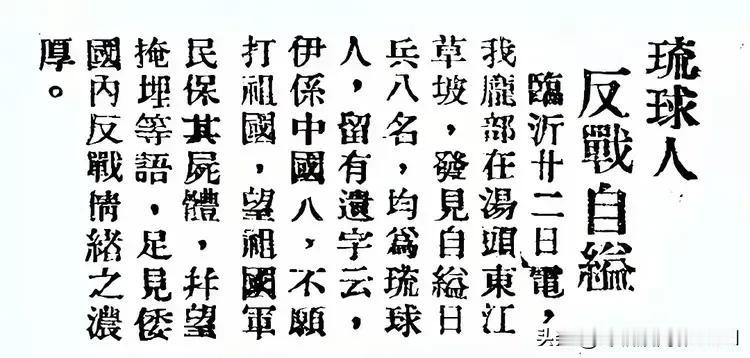 琉球人
反戰自縊
臨沂廿二日電，
我龐部在湯頭東江
草坡，發見自縊日
兵八名，均爲琉球
人，留有遺字云，
伊係中國八，不願
打祖國，望祖國軍
民保其屍體，幷望
掩埋等語，足見倭
國內反戰情緒之濃
厚。